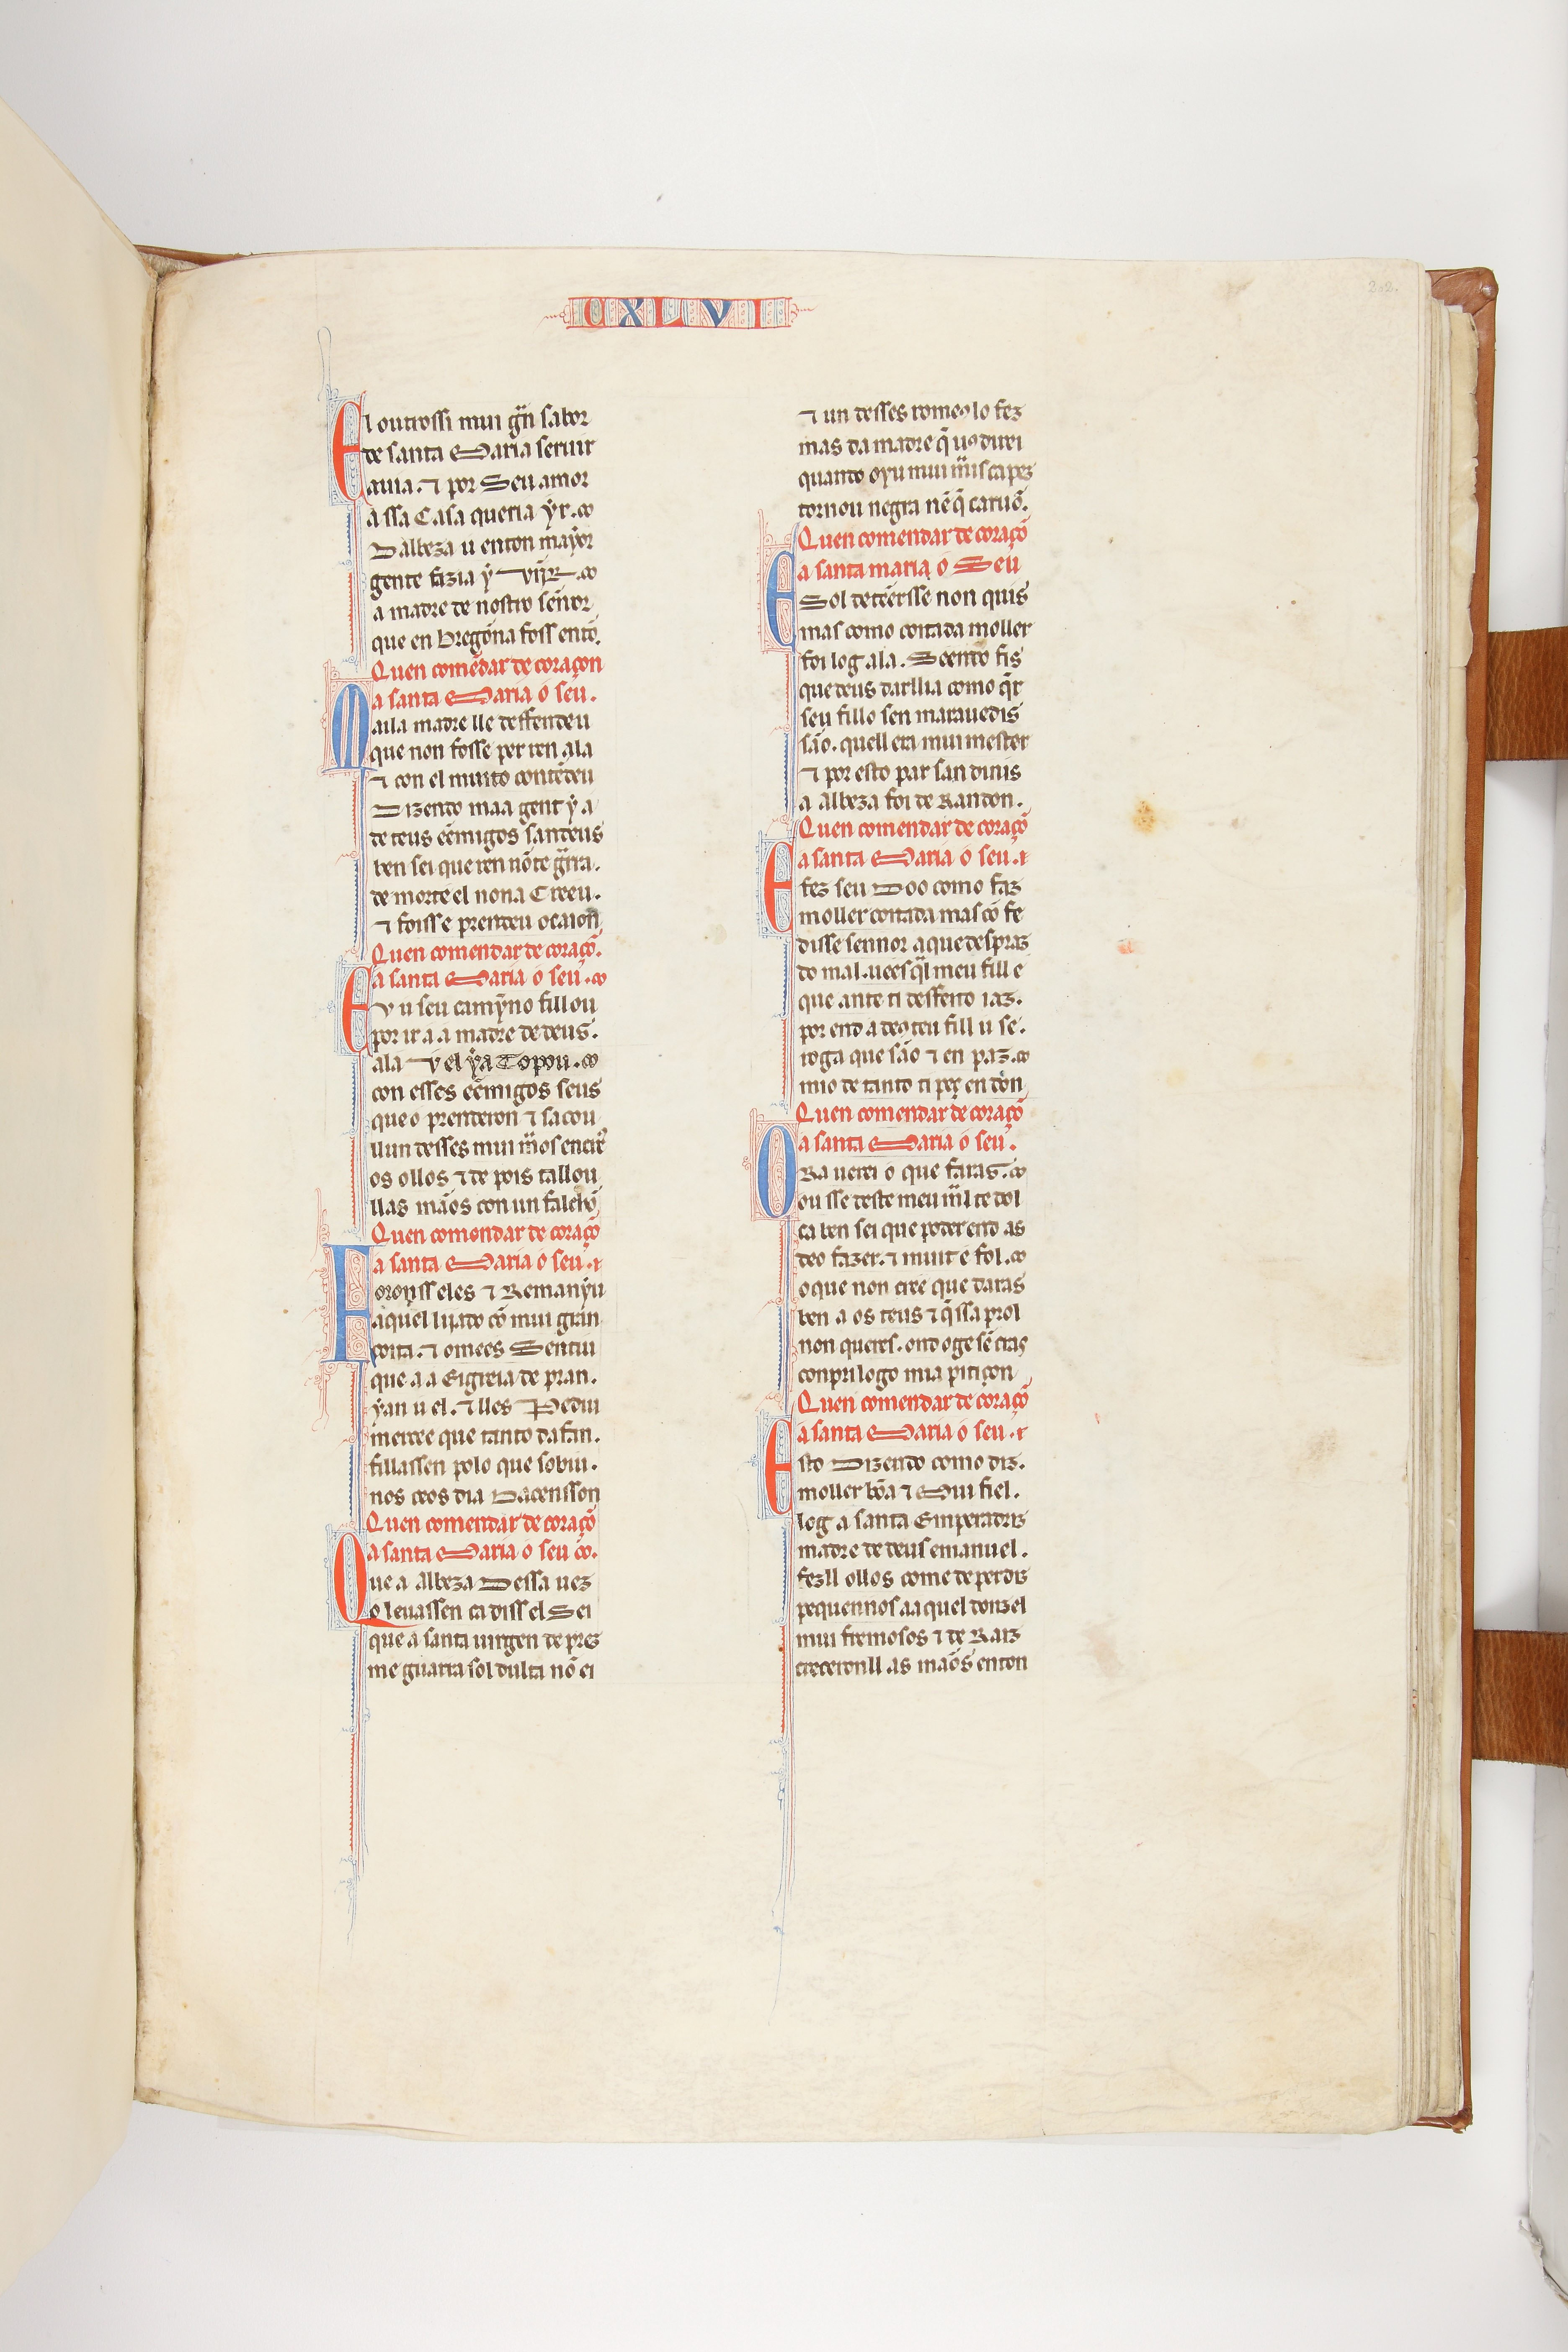 CXLVI
202.
El outrossi mui gͣn sabor
de santa Maria seruir
auia. ⁊ por Seu amor
a ssa Casa queria yr.
Dalbeza u enton mayor
gente fazia ẏ vĩjr.
a madre de nostro sen̄or
que en bregon̄a foss entō.
Quen comēdar de coraçon
a santa Maria o seu.
Maila madre lle deffendeu
que non fosse per ren ala
⁊ con el muito contēdeu
Dizendo maa gent ẏ a
de teus ẽemigos sandeus
ben sei que ren nō te gͣrra.
de morte el nona Creeu.
⁊ foisse prendeu ocaion
Quen comendar de coraçō.
a santa Maria o seu.
E u seu camẏno fillou
por ir a a madre de deus.
ala u el ẏa Topou.
con esses ẽemigos seus
que o prenderon ⁊ sacou
llun desses mui
os ollos ⁊ de pois tallou
llas māos con un falchō
Quen comondar de coraçō
a santa Maria o seu.
Foronss eles ⁊ Remanẏu
aquel lijado cō mui gran
coita. ⁊ omees Sentiu
que a a Eigreia de pran.
ẏan u el. ⁊ lles Pediu
mercee que tanto dafan.
fillassen polo que sobiu.
nos ceos dia Dacenssion
Quen comendar de coraçō
a santa Maria o seu
Que a albeza Dessa uez
o leuassen ca diss el Sei
que a santa uirgen de prez
me guarra sol dulta nō ei
⁊ un desses romeꝯ lo fez
mas da madre q̄ uꝯ direi
quanto oyu mui
tornou negra nē q̄ caruō.
Quen comendar de coraçō
a santa maria o Seu
E Sol deteersse non quis
mas como coitada moller
foi log ala. Seendo fis
que deus darllia como q̄r
seu fillo sen marauedis
sāo. quell era mui mester
⁊ por esto par san dinis
a albeza foi de Randon.
Quen comendar de coraçō
a santa Maria o seu.
E fez seu Doo como faz
moller coitada mas cō fe
disse sennor a que despraz
do mal. uees q̄l meu fill e
que ante ti desfeito iaz.
por end a deꝯ teu fill u se.
roga que sāo ⁊ en paz.
mio de tanto ti per en don
Quen comendar de coraçō
a santa Maria o seu.
Ora uerei o que faras.
ou sse deste meu mͣl te dol
ca ben sei que poder end as
deo fazer. ⁊ muit e fol.
o que non cree que daras
ben a os teus ⁊ q̄ ssa prol
non queres. ond oge sē cras
conpri logo mia pitiçon
Quen comendar de coraçō
a santa Maria o seu.
Esto Dizendo como diz.
moller bōa ⁊ Mui fiel.
log a santa Emperadriz
madre de deus emanuel.
fezll ollos come de perdiz
pequennos a aquel donzel
mui fremosos ⁊ de Raiz
creceronll as māos enton